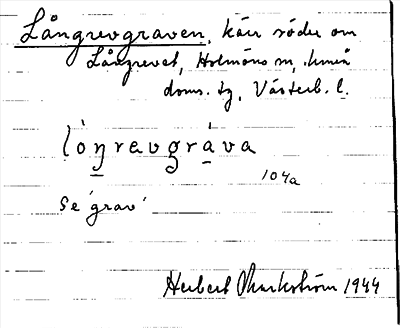 Långrevgraven, kärr söder om
Långrevet, Holmöns sn, Umeå
doms. tg, Västerb. l.
lò̀ŋrevgráva
104a
Se 'grav'
Herbert Markström 1944